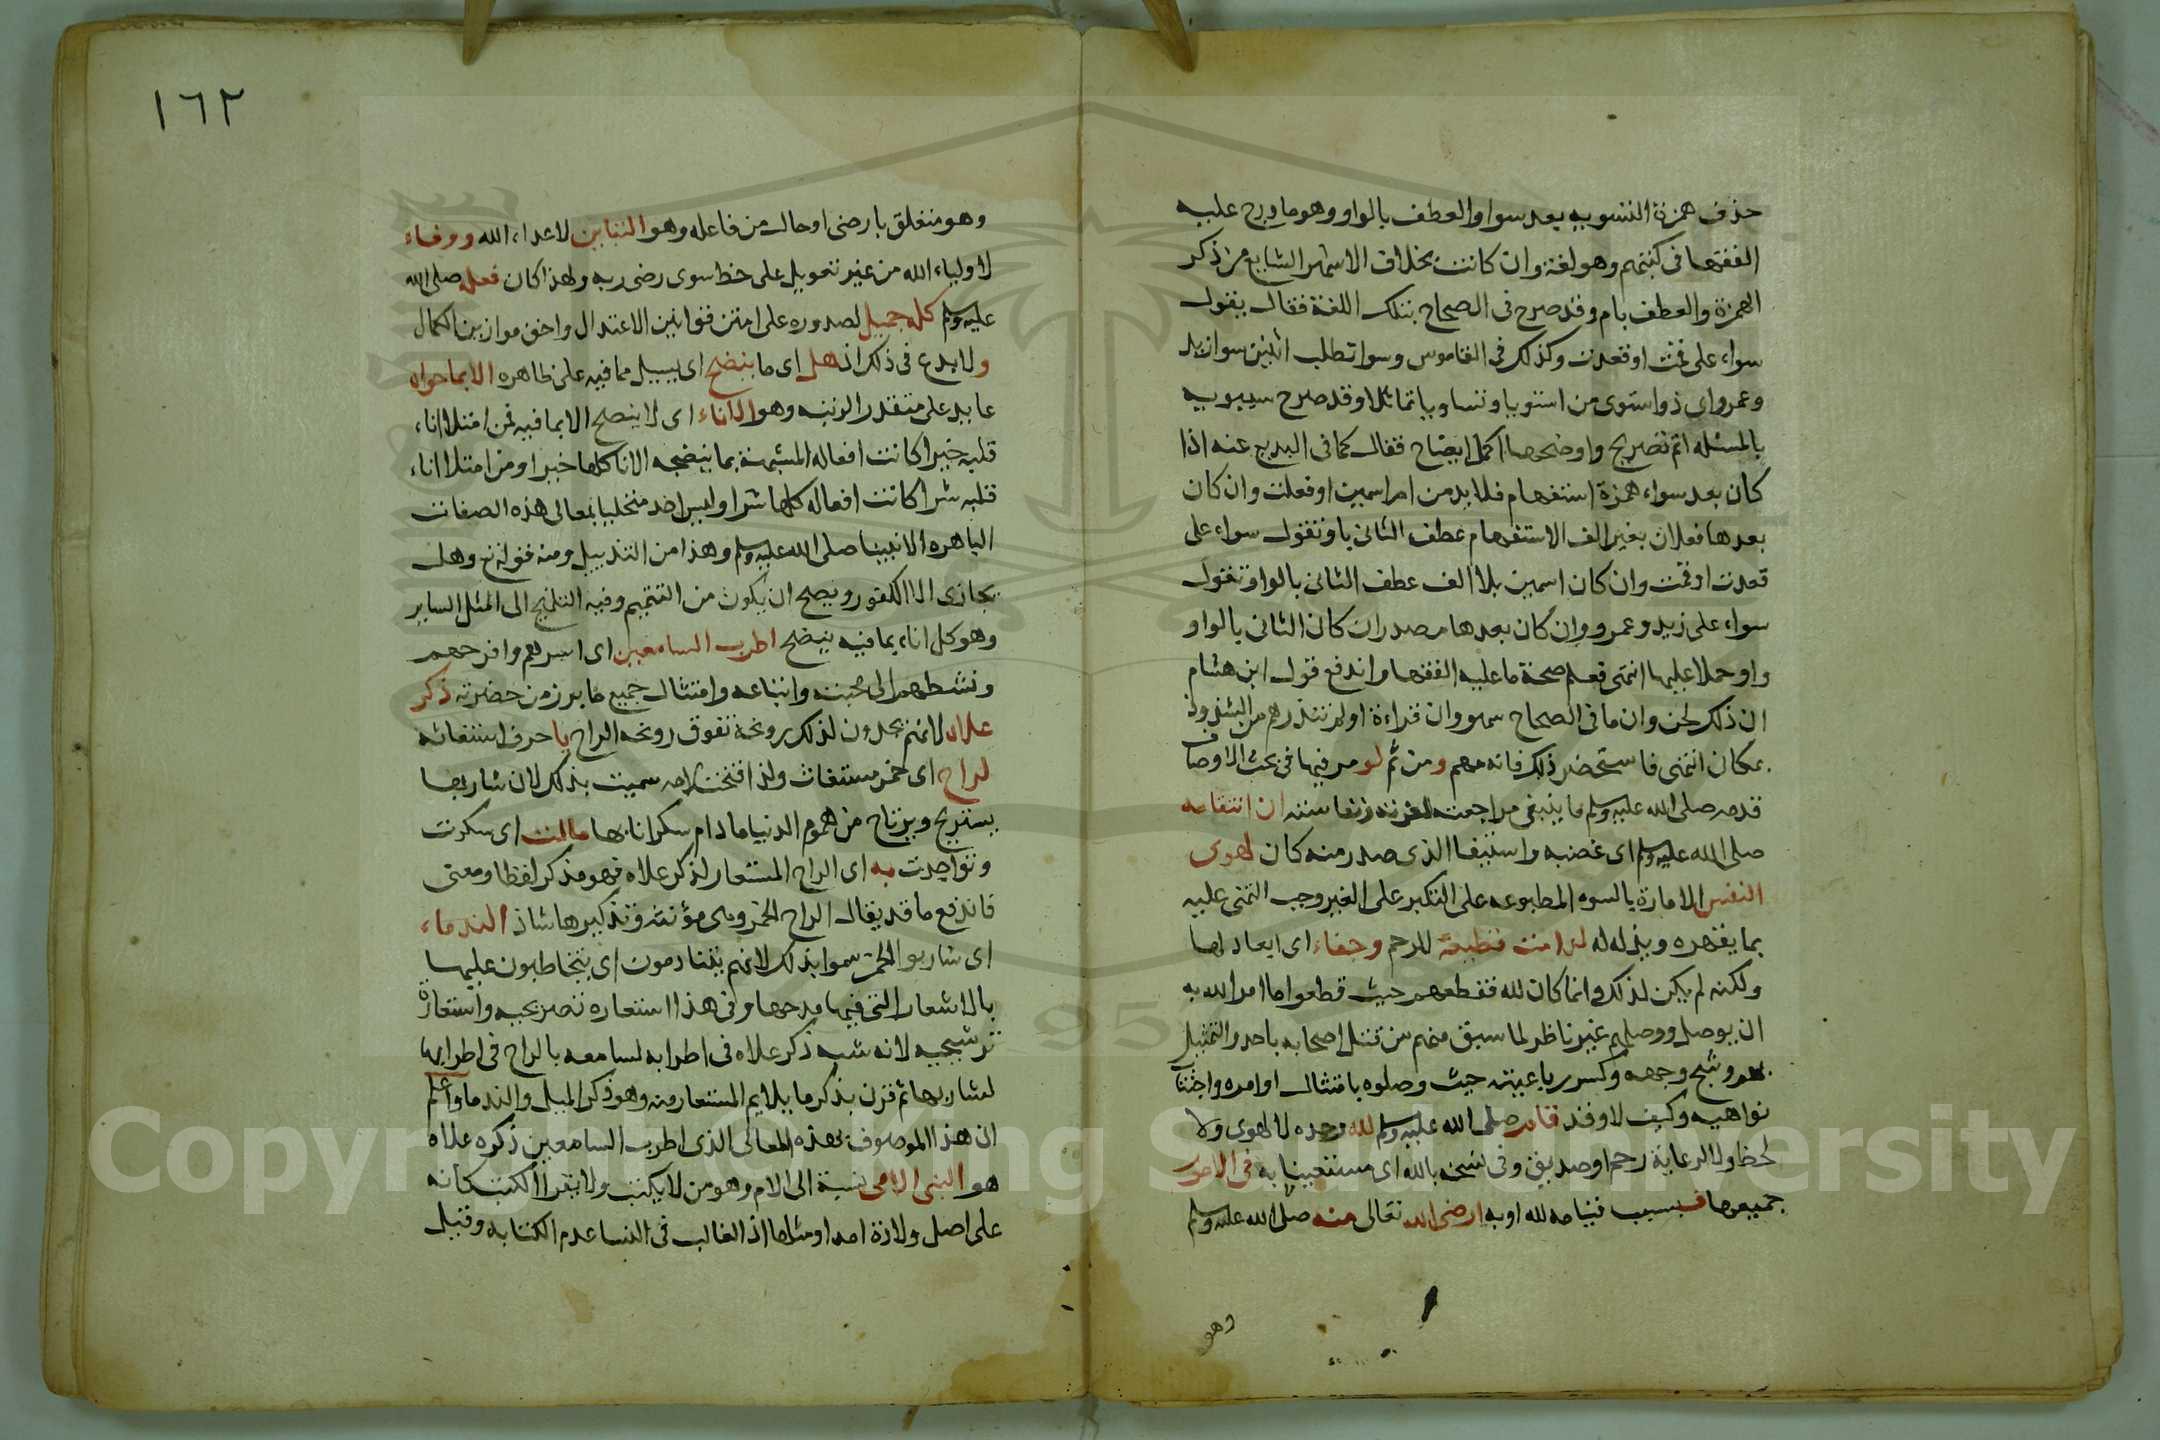 حذف همزة التسويه بعد سوا والعطف بالواو وهو ما درج عليه
الفقها فى كتبهم وهو لغة وان كانت بخلاف الاشهر الشايع من ذكر
الهمزة والعطف بام وقد صرح فى الصحاح بتلك اللغة فقال يقول
سواء على قمت او قعدت وكذلك فى القاموس وسوا تطلب اثنين سوا زيد
وعمرو اي ذوا ستوى من استويا وتساويا تماثلا وقد صرح سيبويه
بالمسئله اتم تصريح واوضحها اكمل ايضاح فقال كما فى البديع عنه اذا
كان بعد سواء همزة استفهام فلا بد من ام اسمين او فعلت وان كان
بعدها فعلان بغير الف الاستفهام عطف الثانى باو تقول سواء على
قعدت او قمت وان كان اسمين بلا الف عطف الثانى بالواو تقول
سواء على زيد وعمرو وان كان بعدها مصدران كان الثانى بالواو
واو حملا عليها انتهى فعلم صحة ما عليه الفقها واندفع قول ابن هشام
ان ذلك لحن وان ما فى الصحاح سهو وان قراءة اولم تنذرهم من الشذوذ
بمكان انتهى فاستحضر ذلك فانه مهم ومن ثم لو مر فيها فى بحث الاوصاف
قدمه صلى الله عليه وسلم ما ينبغى مراجعته لعزته ونفاسته ان انتقامه
صلى الله عليه وسلم اى غضبه واستيفا الذى صدر منه كان لهوى
النفس الامارة بالسوء المطبوعه على التكبر على الغير وجب التمنى عليه
بما يقهره ويذله له لدامت قطيعة للرحم وجفاء اى ابعاد لها
ولكنه لم يكن لذلك وانما كان لله فقطعهم حيث قطعوا ما امر الله به
ان يوصل ووصلهم غير ناظر لما سبق منهم من قتل اصحابه باحد والتمثيل
بهم وشج وجهه وكسر رباعيته حيث وصلوه بامتثال اوامره واجتناب
نواهيه وكيف لا وقد قام صلى الله عليه وسلم لله وحده لا لهوى ولا
لحظ ولا لرعاية رحم او صديق وفى نسخه بالله اى مستعينا به فى الامور
جميعها فبسبب قيامه لله او به ارضى الله تعالى منه صلى الله عليه وسلم
وهو
١٦٢
وهو متعلق بارضى او حال من فاعله وهو التباين لاعداء الله ووفاء
لاولياء الله من غير تعويل على حظ سوى رضى ربه ولهذا كان فعله صلى الله
عليه وسلم كله جميل لصدوره على امتن قوانين الاعتدال واخق موازين الكمال
ولا بدع فى ذلك اذ هل اى ما ينضح اى يسيل مما فيه على ظاهره الا بما حواه
عايد على متقدر الرتبه وهو الاناء اى لا ينضح الا بما فيه فمن امتلا اناء
قلبه خيرا كانت افعاله المشبهة بما ينضحه الانا كلها خيرا ومن امتلا اناء
قلبه شرا كانت افعاله كلها شرا وليس احد متحليا بمعالى هذه الصفات
الباهره الا نبينا صلى الله عليه وسلم وهذا من التذييل ومنه قوله تع وهل
يجازى الا الكفور ويصح ان يكون من التتميم وفيه التلميح الى المثل الساير
وهو كل اناء بما فيه ينضح اطرب السامعين اى اسرهم وافرحهم
ونشطهم الى محبته واتباعه وامتثال جميع ما برز من حضرته ذكر
علاه لانهم يجدون لذلك روحة تفوق روحه الراح يا حرف استغاثه
لراح اى خمر مستغاث ولذا افتحت لامه سميت بذلك لان شاربها
يستريح ويرتاح من هموم الدنيا ما دام سكرانا بها مالت اى سكرت
وتواجدت به اى الراح المستعار لذكر علاه فهو مذكر لفظا ومعنى
فاندفع ما قد يقال الراح الخمر وهى مؤنثة وتذكيرها شاذ الندماء
اى شاربو الخمر سموا بذلك لانهم يتنادمون اى يتخاطبون عليها
بالاشعار التى فيها مدحها وفى هذا استعاره تصريحيه واستعارة
ترشيحيه لانه شبه ذكر علاه فى اطرابه لسامعه بالراح فى اطرابها
لشاربها ثم قرن بذكر ما يلايم المستعار منه وهو ذكر الميل والندما واعلم
ان هذا الموصوف بهذه المعالى الذى اطرب السامعين ذكره علاه
هو النبى الامى نسبة الى الام وهو من لا يكتب ولا يقرا الكتب كانه
على اصل ولادة امه او مثلها اذ الغالب فى النسا عدم الكتابه وقيل
Copyright © King Saud University